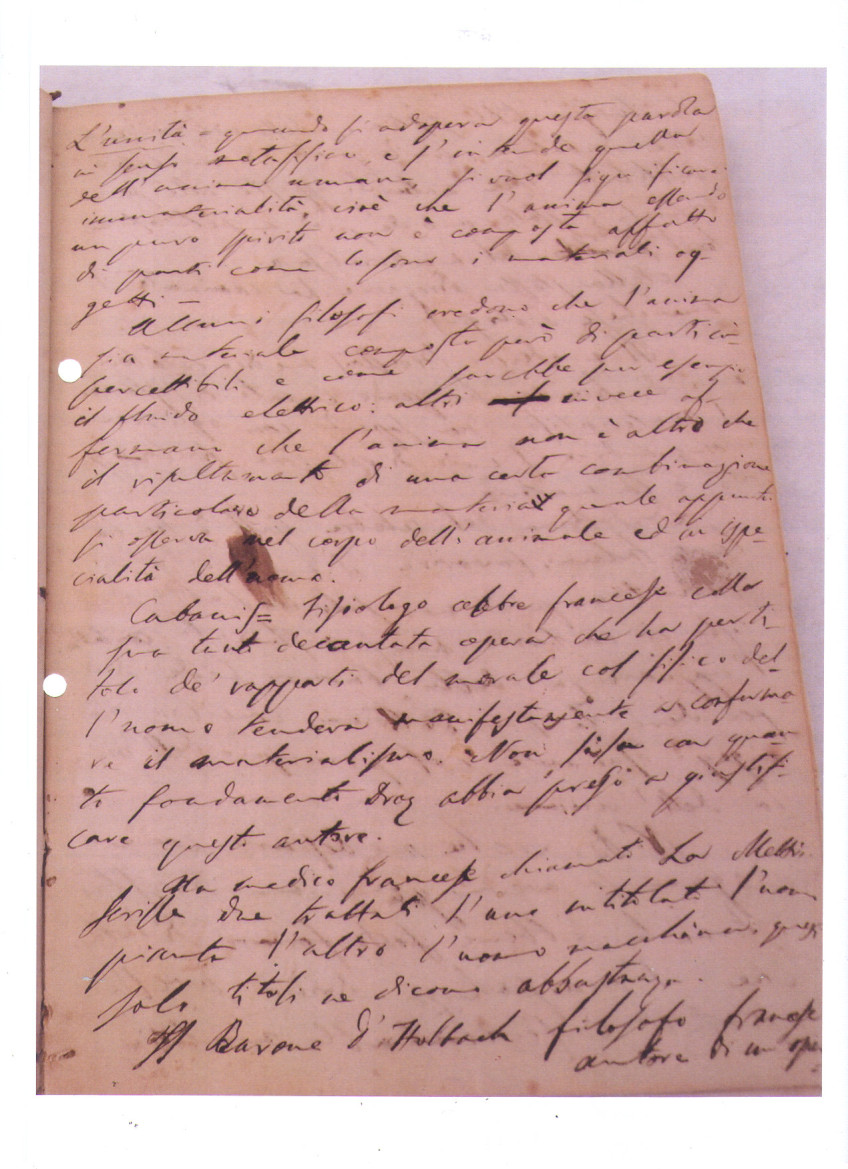 L'unità - quando si adopera questa parola
in senso metafisico, e s'intende quella
dell'anima umana, si vuol significare
immaterialità, cioè che l'anima essendo
un puro spirito non è composta affatto
di parti come lo sono i materiali og-
getti -
Alcuni filosofi credono che l'anima
sia materiale composta però di parti im-
percettibili e come sarebbe per esempio
il fluido elettrico: altri invece af-
fermano che l'anima non è altro che
il risultamento di una certa combinazione
particolare della materia quale appunto
si osserva nel corpo dell'animale ed in ispe-
cialità dell'uomo.
Cabanis = Fisiologo celebre francese colla
sua tanto decantata opera che ha per ti-
tolo de' rapporti del morale col fisico del-
l'uomo tendeva manifestamente a conferma
re il materialismo. Non so con quan
ti fondamenti Droz abbia preso a giustifi-
care questo autore.
Un medico francese chiamato La Mettrie
scrisse due trattati l'uno intitolato l'uomo
pianta l'altro l'uomo macchina, questi
soli titoli ne dicono abbastanza.
Il Barone d'Holbach filosofo francese
autore di un opera